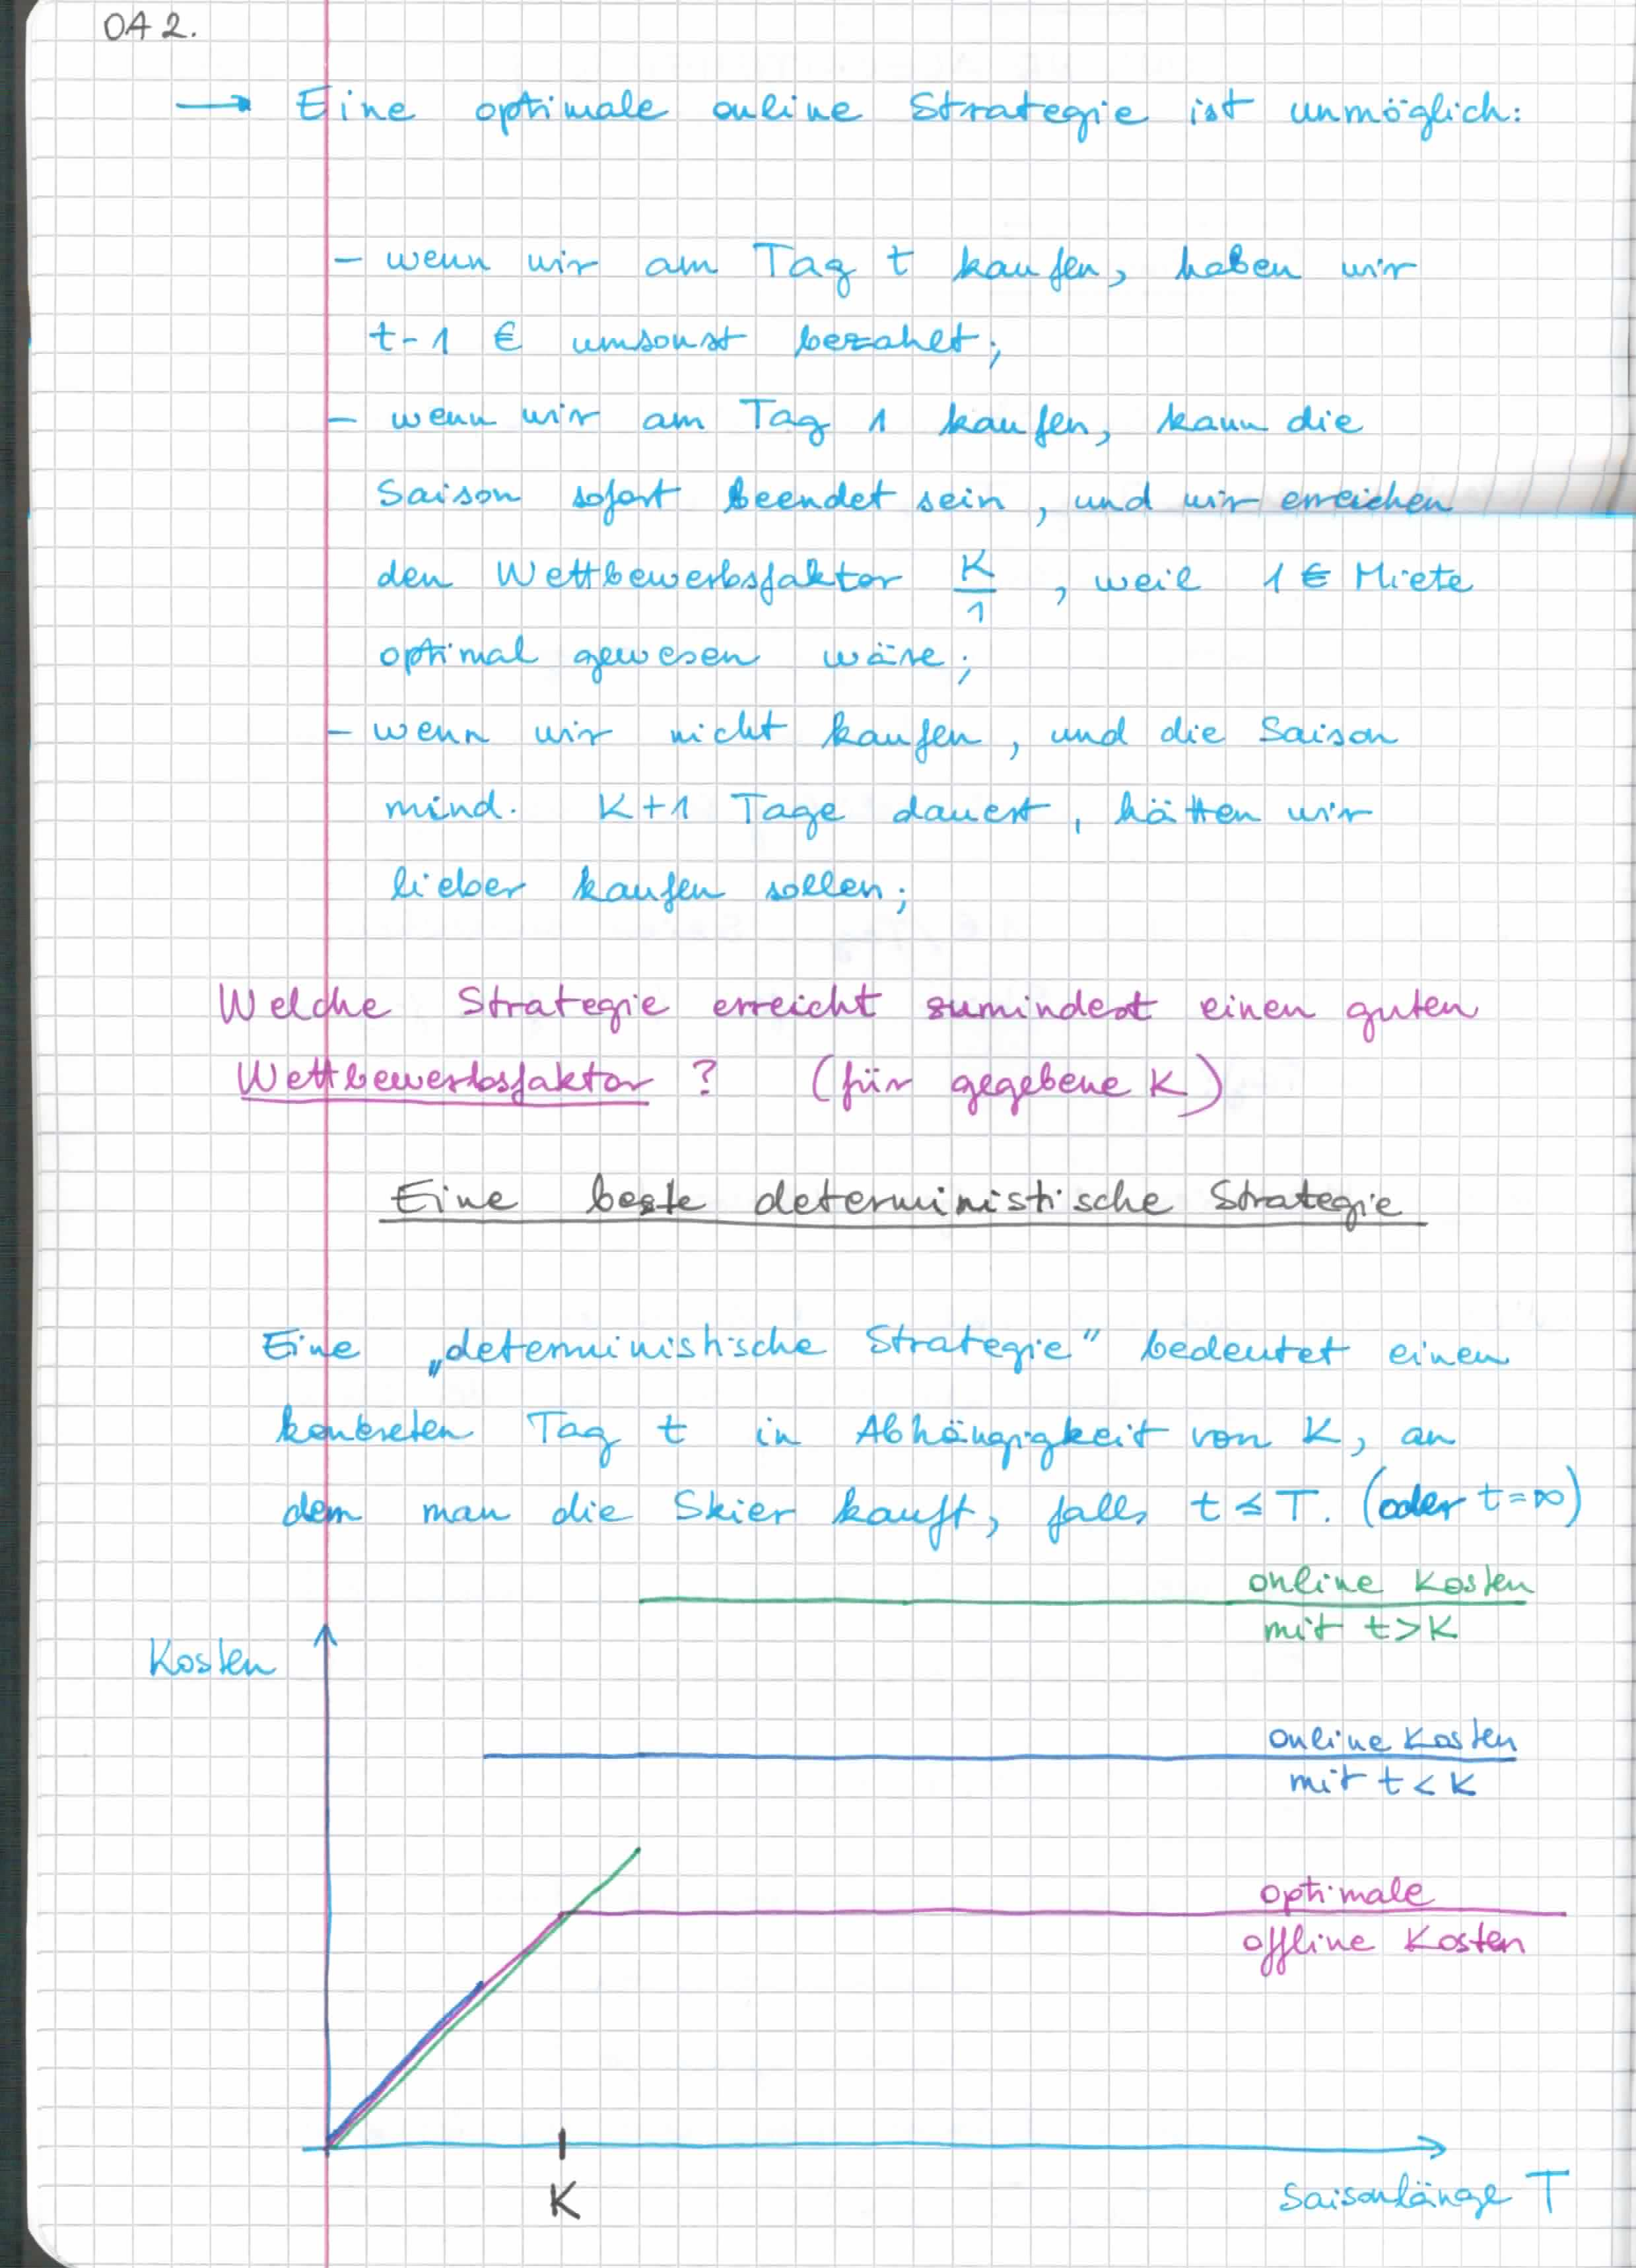 OA 2.
→ Eine optimale online Strategie ist unmöglich:
- wenn wir am Tag t kaufen, haben wir
t-1 € umsonst bezahlt;
- wenn wir am Tag 1 kaufen, kann die
Saison sofort beendet sein, und wir erreichen
den Wettbewerbsfaktor K/1, weil 1 € Miete
optimal gewesen wäre;
- wenn wir nicht kaufen, und die Saison
mind. K+1 Tage dauert, hätten wir
lieber kaufen sollen;
Welche Strategie erreicht zumindest einen guten
Wettbewerbsfaktor? (für gegebene K)
Eine beste deterministische Strategie
Eine „deterministische Strategie" bedeutet einen
konkreten Tag t in Abhängigkeit von K, an
dem man die Skier kauft, falls t ≤ T. (oder t = ∞)
online Kosten
mit t > K
Kosten
online Kosten
mit t < K
optimale
offline Kosten
K
Saisonlänge T